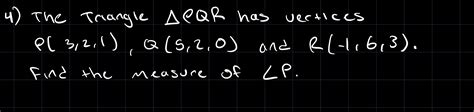 4) The Triangle ΔPQR has vertices
P(3,2,1), Q(5,2,0) and R(-1,6,3).
Find the measure of ∠P.